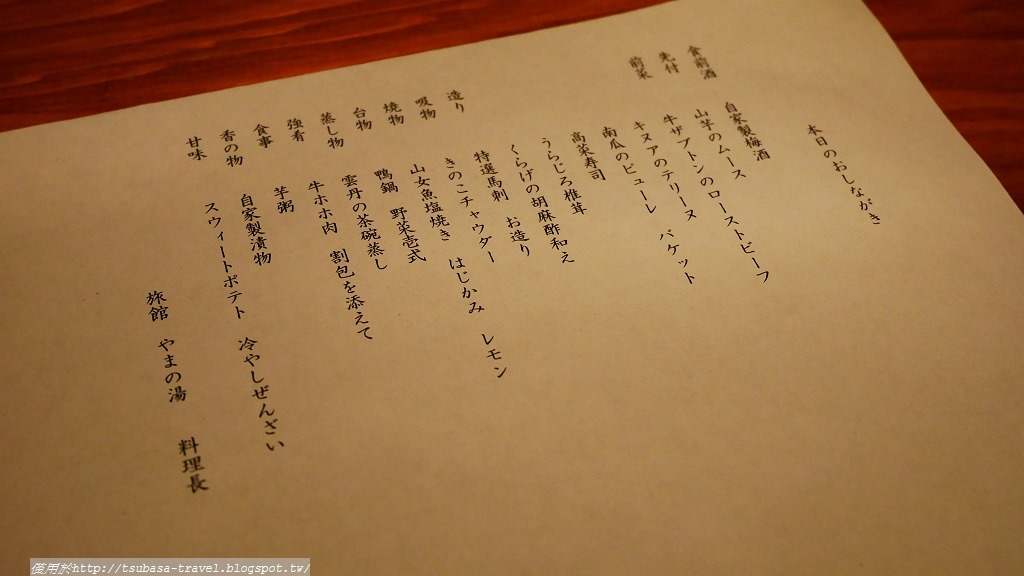 本日のおしながき
食前酒 自家製梅酒
先付 山芋のムース
前菜 牛ザブトンのローストビーフ
キヌアのテリーヌ バケット
南瓜のピューレ
高菜寿司
うらじろ椎茸
くらげの胡麻酢和え
造り 特選馬刺 お造り
吸物 きのこチャウダー
焼物 山女魚塩焼き はじかみ レモン
台物 鴨鍋 野菜壱式
蒸し物 雲丹の茶碗蒸し
強肴 牛ホホ肉 割包を添えて
食事 芋粥
香の物 自家製漬物
甘味 スウィートポテト 冷やしぜんざい
旅館 やまの湯 料理長
使用於http://tsubasa-travel.blogspot.tw/